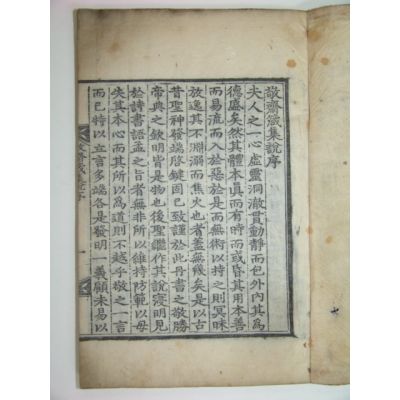 敬齋箴集說序
夫人之一心虛靈洞澈貫動靜而包外內其為
德盛矣然其體本眞而有時而或昏其用本善
而易流而入於惡於是而無術以持之則冥昧
放逸其不淵溺而焦火也者蓋無幾矣是以古
昔聖神發端啓鍵固已致謹於此丹書之敬勝
帝典之欽明皆是物也後聖繼作其說寖明見
於詩書語孟之旨者無非所以維持防範以毋
失其本心而其所以為道則不越乎敬之一言
而已特以立言多端各是發明一義顧未易以